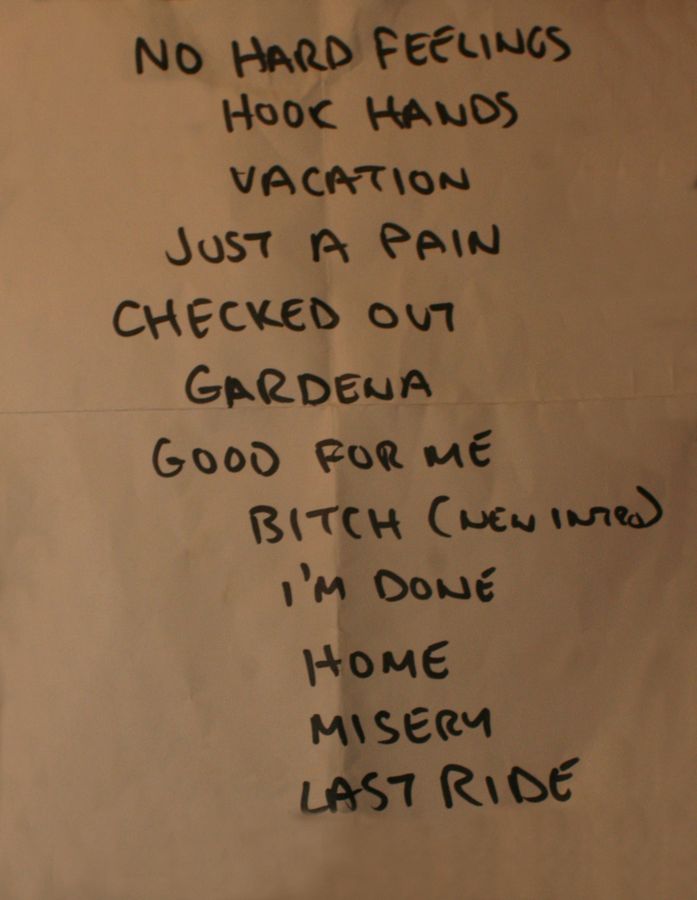 NO HARD FEELINGS
HOOK HANDS
VACATION
JUST A PAIN
CHECKED OUT
GARDENA
GOOD FOR ME
BITCH (NEW INTRO)
I'M DONE
HOME
MISERY
LAST RIDE